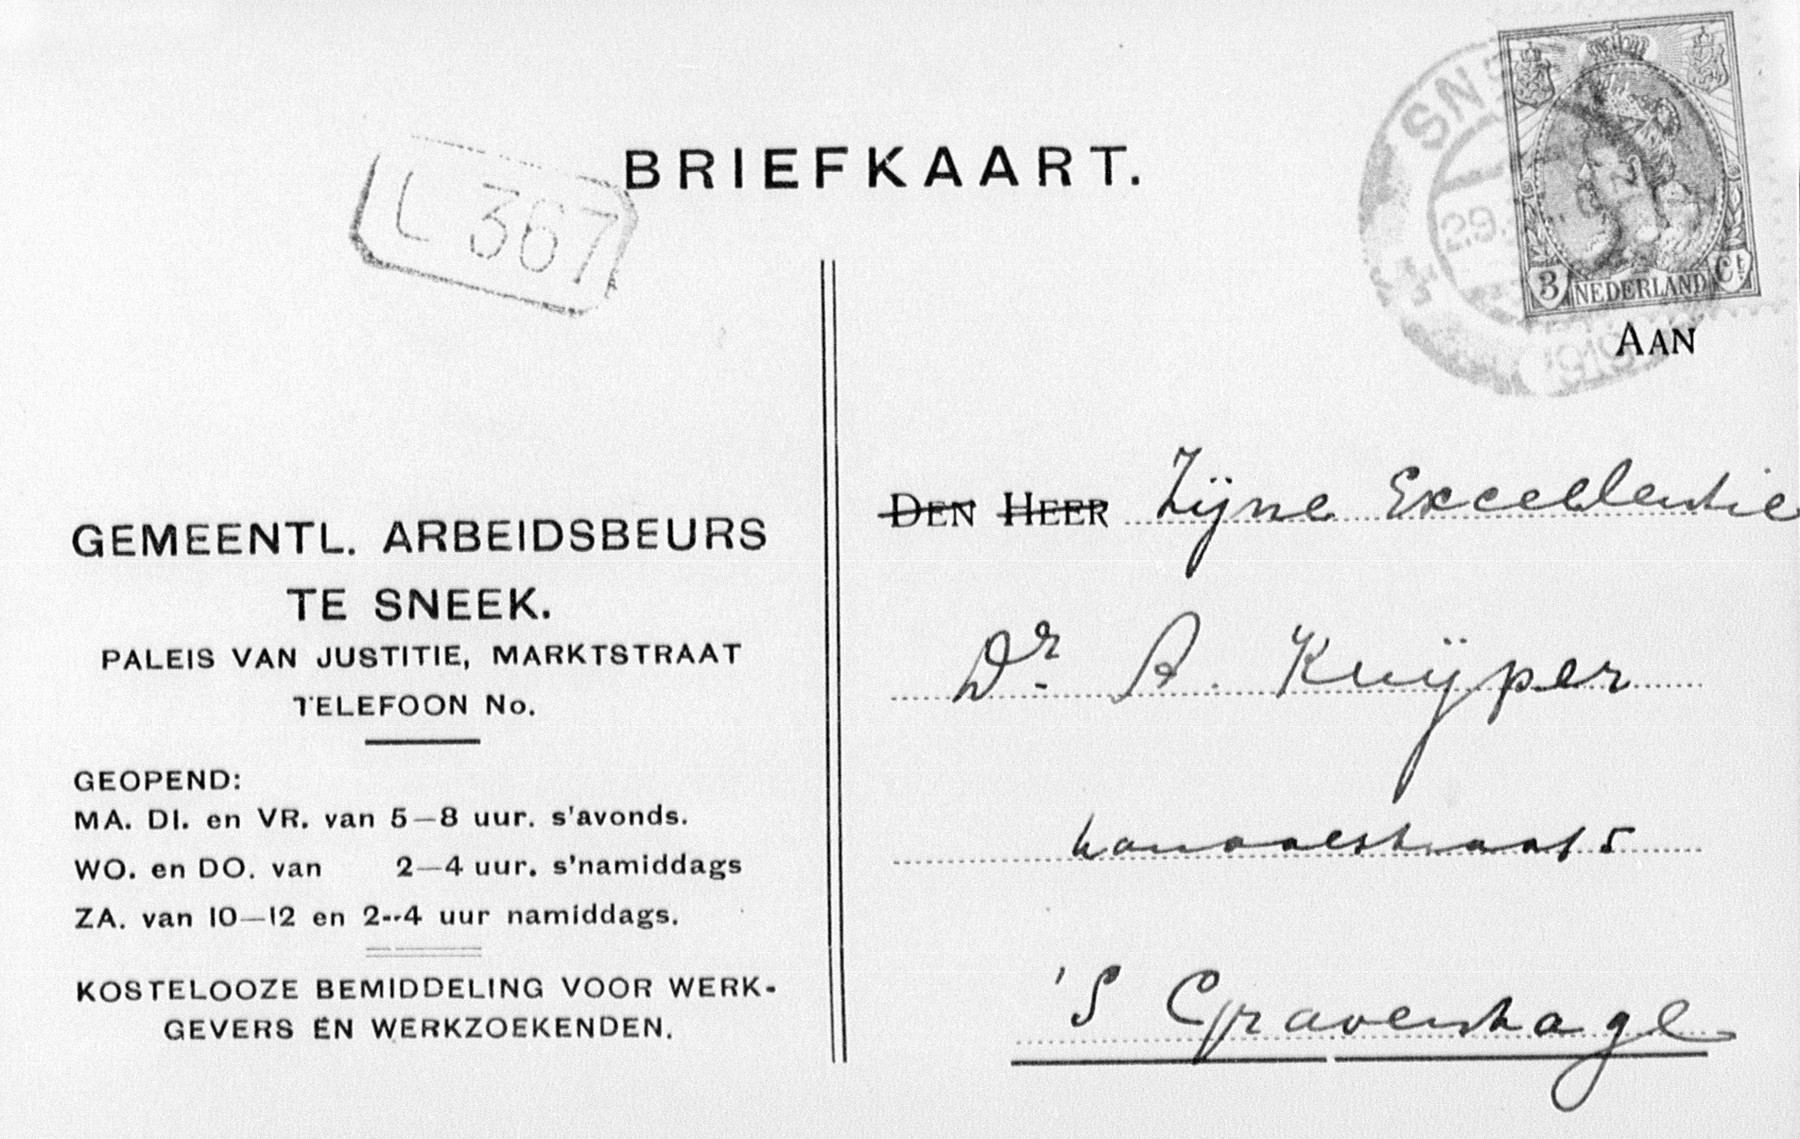 BRIEFKAART.
L 367
29.
1919
3 NEDERLAND Ct
AAN
GEMEENTL. ARBEIDSBEURS
TE SNEEK.
PALEIS VAN JUSTITIE, MARKTSTRAAT
TELEFOON No.
GEOPEND:
MA. DI. en VR. van 5—8 uur. s'avonds.
WO. en DO. van 2—4 uur. s'namiddags
ZA. van 10—12 en 2--4 uur namiddags.
KOSTELOOZE BEMIDDELING VOOR WERK-
GEVERS EN WERKZOEKENDEN.
DEN HEER Zijne Excellentie
Dr. A. Kuÿper
Kanaalstraat 5
'S Gravenhage